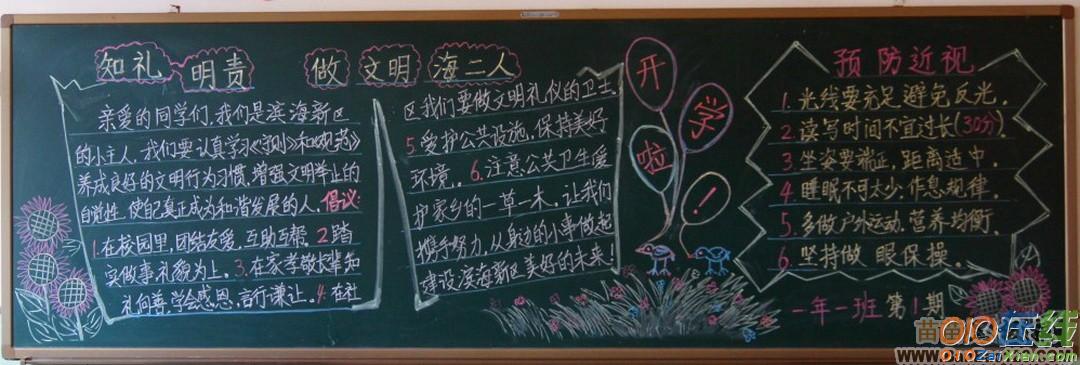 知礼 明责 做 文明 海二人
亲爱的同学们,我们是滨海新区
的小主人,我们要认真学习《守则》和《规范》
养成良好的文明行为习惯,增强文明举止的
自觉性,使自己真正成为和谐发展的人,倡议:
1.在校园里,团结友爱,互助互帮。2.踏
实做事,礼貌为上。3.在家孝敬长辈,知
礼向善,学会感恩,言行谦让。4.在社
区我们要做文明礼仪的卫士.
5.爱护公共设施,保持美好
环境。6.注意公共卫生爱
护家乡的一草一木。让我们
携手努力,从身边的小事做起
建设滨海新区美好的未来!
开
学
啦
!
预防近视
1.光线要充足避免反光。
2.读写时间不宜过长(30分)
3.坐姿要端正,距离适中。
4.睡眠不可太少,作息规律。
5.多做户外运动,营养均衡。
6.坚持做 眼保操。
一年一班 第1期
010在线
www.010ZaiXian.com